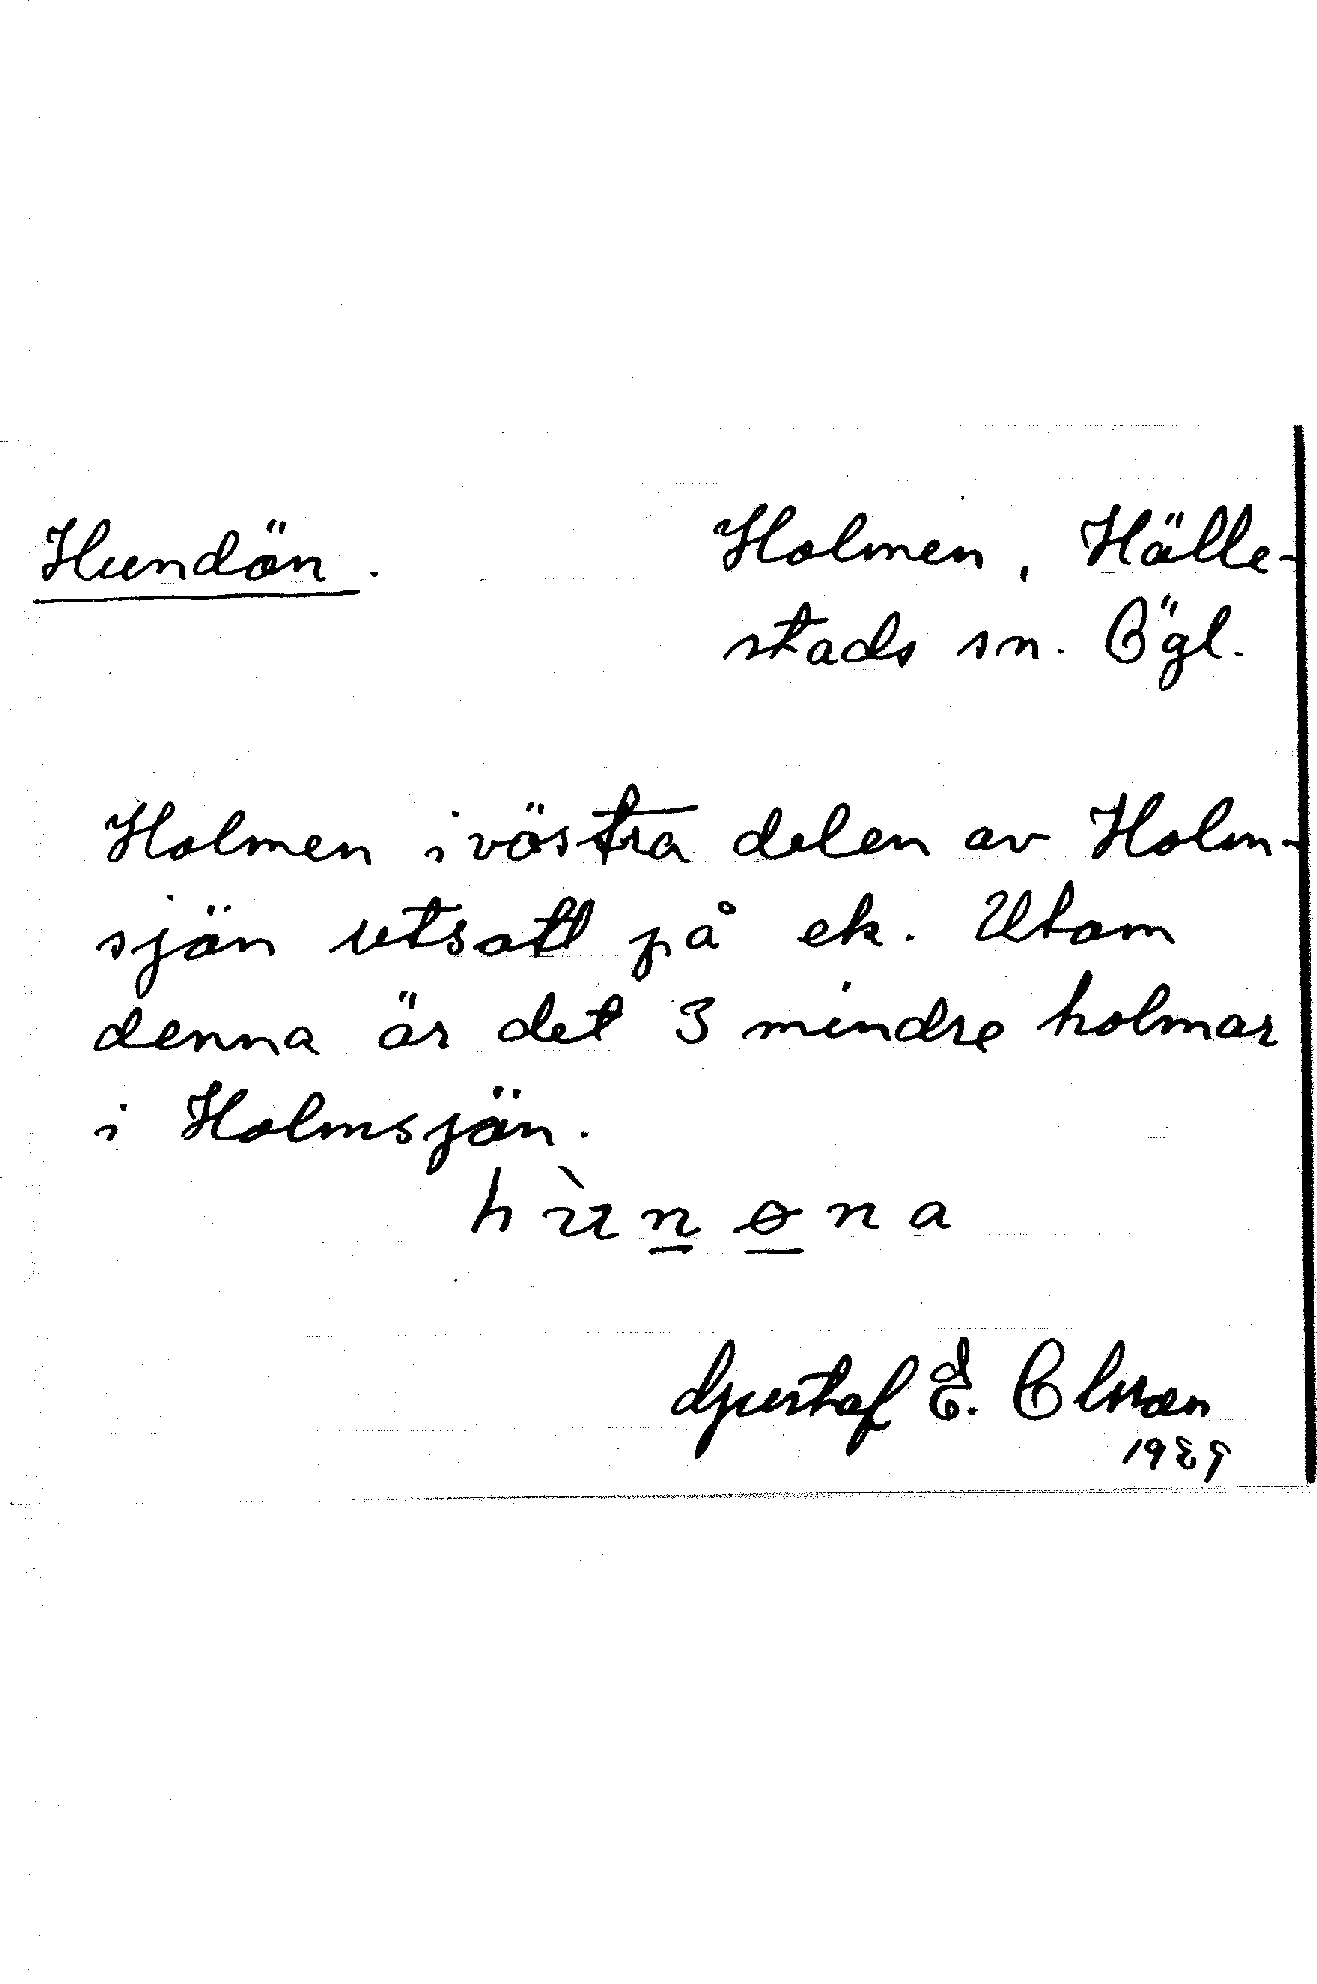 Hundön.
Holmen, Hälle-
stads sn. Ögl.
Holmen i västra delen av Holm-
sjön utsatt på ek. Utom
denna är det 3 mindre holmar
i Holmsjön.
Gustaf E. Olsson